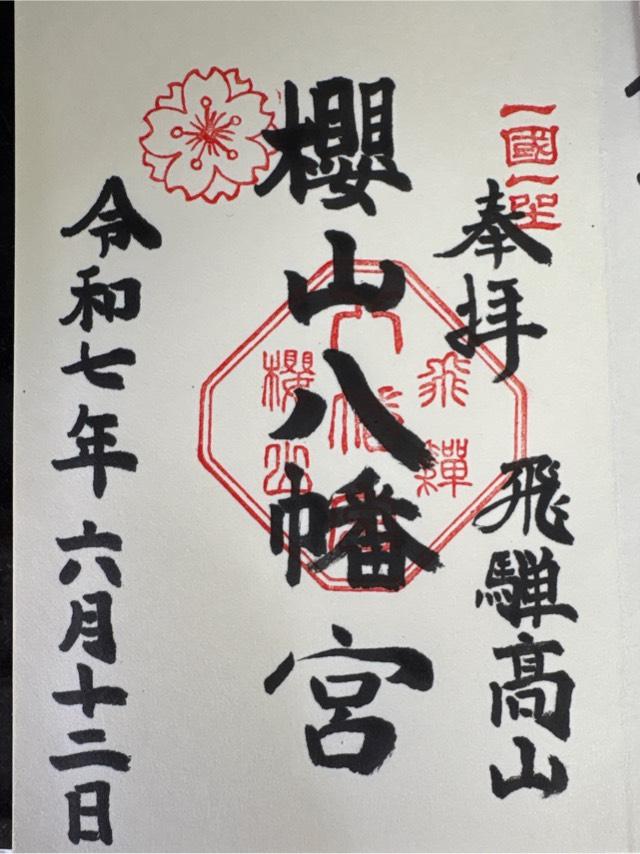 一國一社
奉拝
飛騨髙山
櫻山八幡宮
飛驒
八幡宮
櫻山
令和七年六月十二日